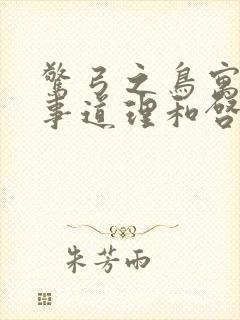 驚弓之鳥寓
事道理和啓
朱芳雨